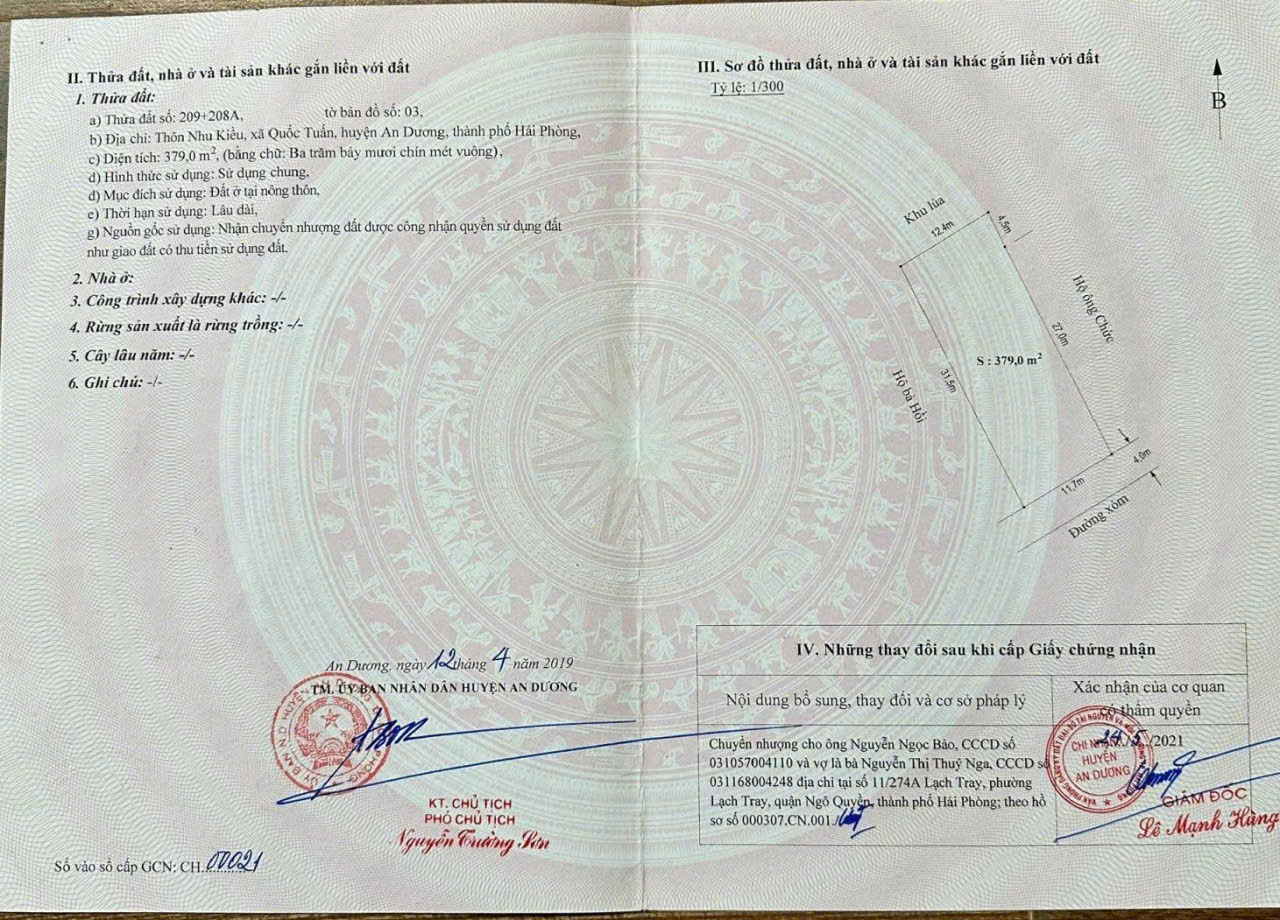 II. Thửa đất, nhà ở và tài sản khác gắn liền với đất
1. Thửa đất:
a) Thửa đất số: 209+208A, tờ bản đồ số: 03,
b) Địa chỉ: Thôn Nhu Kiều, xã Quốc Tuấn, huyện An Dương, thành phố Hải Phòng,
c) Diện tích: 379,0 m², (bằng chữ: Ba trăm bảy mươi chín mét vuông),
d) Hình thức sử dụng: Sử dụng chung,
đ) Mục đích sử dụng: Đất ở tại nông thôn,
e) Thời hạn sử dụng: Lâu dài,
g) Nguồn gốc sử dụng: Nhận chuyển nhượng đất được công nhận quyền sử dụng đất
như giao đất có thu tiền sử dụng đất.
2. Nhà ở:
3. Công trình xây dựng khác: -/-
4. Rừng sản xuất là rừng trồng: -/-
5. Cây lâu năm: -/-
6. Ghi chú: -/-
An Dương, ngày 12 tháng 4 năm 2019
TM. ỦY BAN NHÂN DÂN HUYỆN AN DƯƠNG
KT. CHỦ TỊCH
PHÓ CHỦ TỊCH
Nguyễn Trường Sơn
Số vào sổ cấp GCN: CH.00021
III. Sơ đồ thửa đất, nhà ở và tài sản khác gắn liền với đất
Tỷ lệ: 1/300
B
Khu lúa
12.4m
4,5m
Hộ ông Chức
27,0m
S : 379,0 m²
31,5m
Hộ bà Hồi
4,0m
11,7m
Đường xóm
IV. Những thay đổi sau khi cấp Giấy chứng nhận
Nội dung bổ sung, thay đổi và cơ sở pháp lý
Xác nhận của cơ quan
có thẩm quyền
Chuyển nhượng cho ông Nguyễn Ngọc Bảo, CCCD số
031057004110 và vợ là bà Nguyễn Thị Thuý Nga, CCCD số
031168004248 địa chỉ tại số 11/274A Lạch Tray, phường
Lạch Tray, quận Ngô Quyền, thành phố Hải Phòng; theo hồ
sơ số 000307.CN.001./
/5/2021
CHI NHÁNH
HUYỆN
AN DƯƠNG
GIÁM ĐỐC
Lê Mạnh Hùng